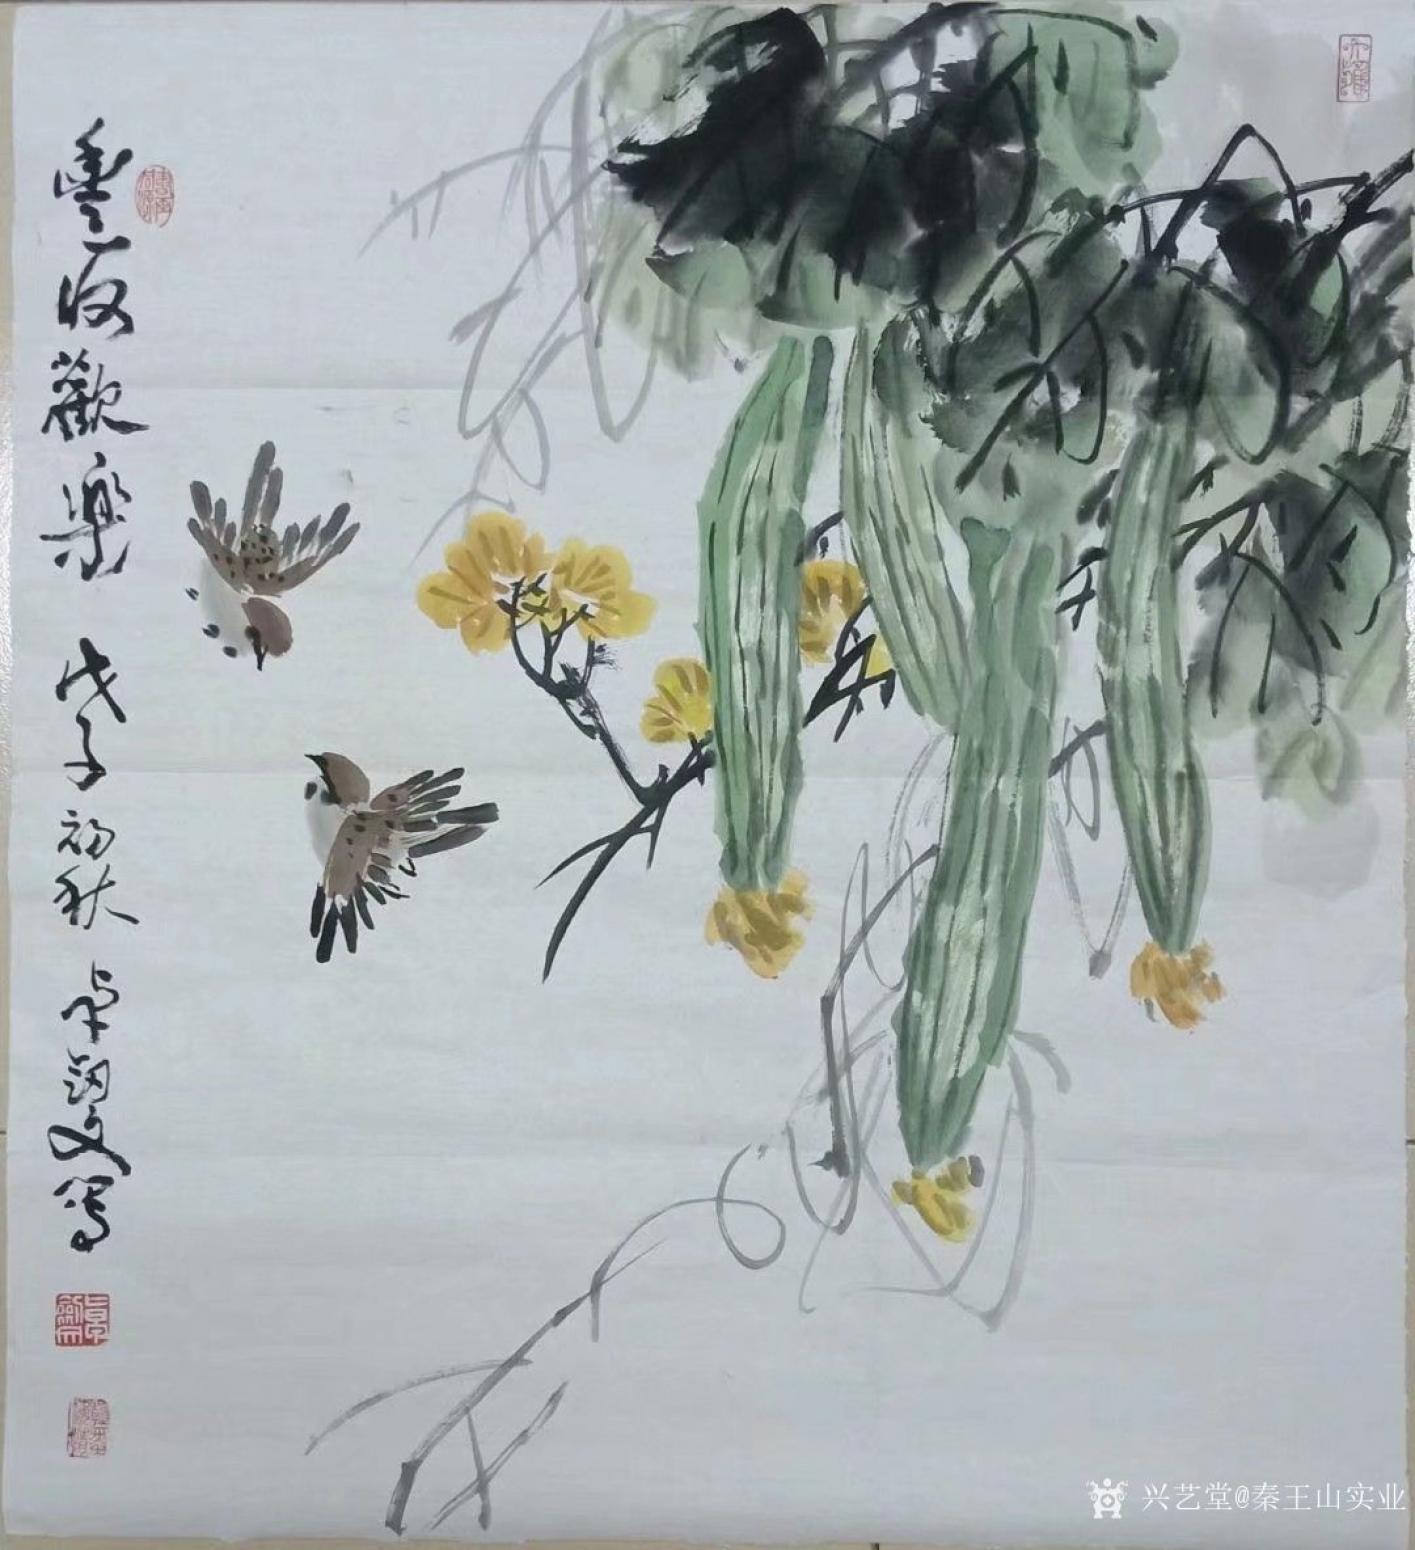 豐收歡樂 戊子初秋 卓 寫
兴艺堂@秦王山实业